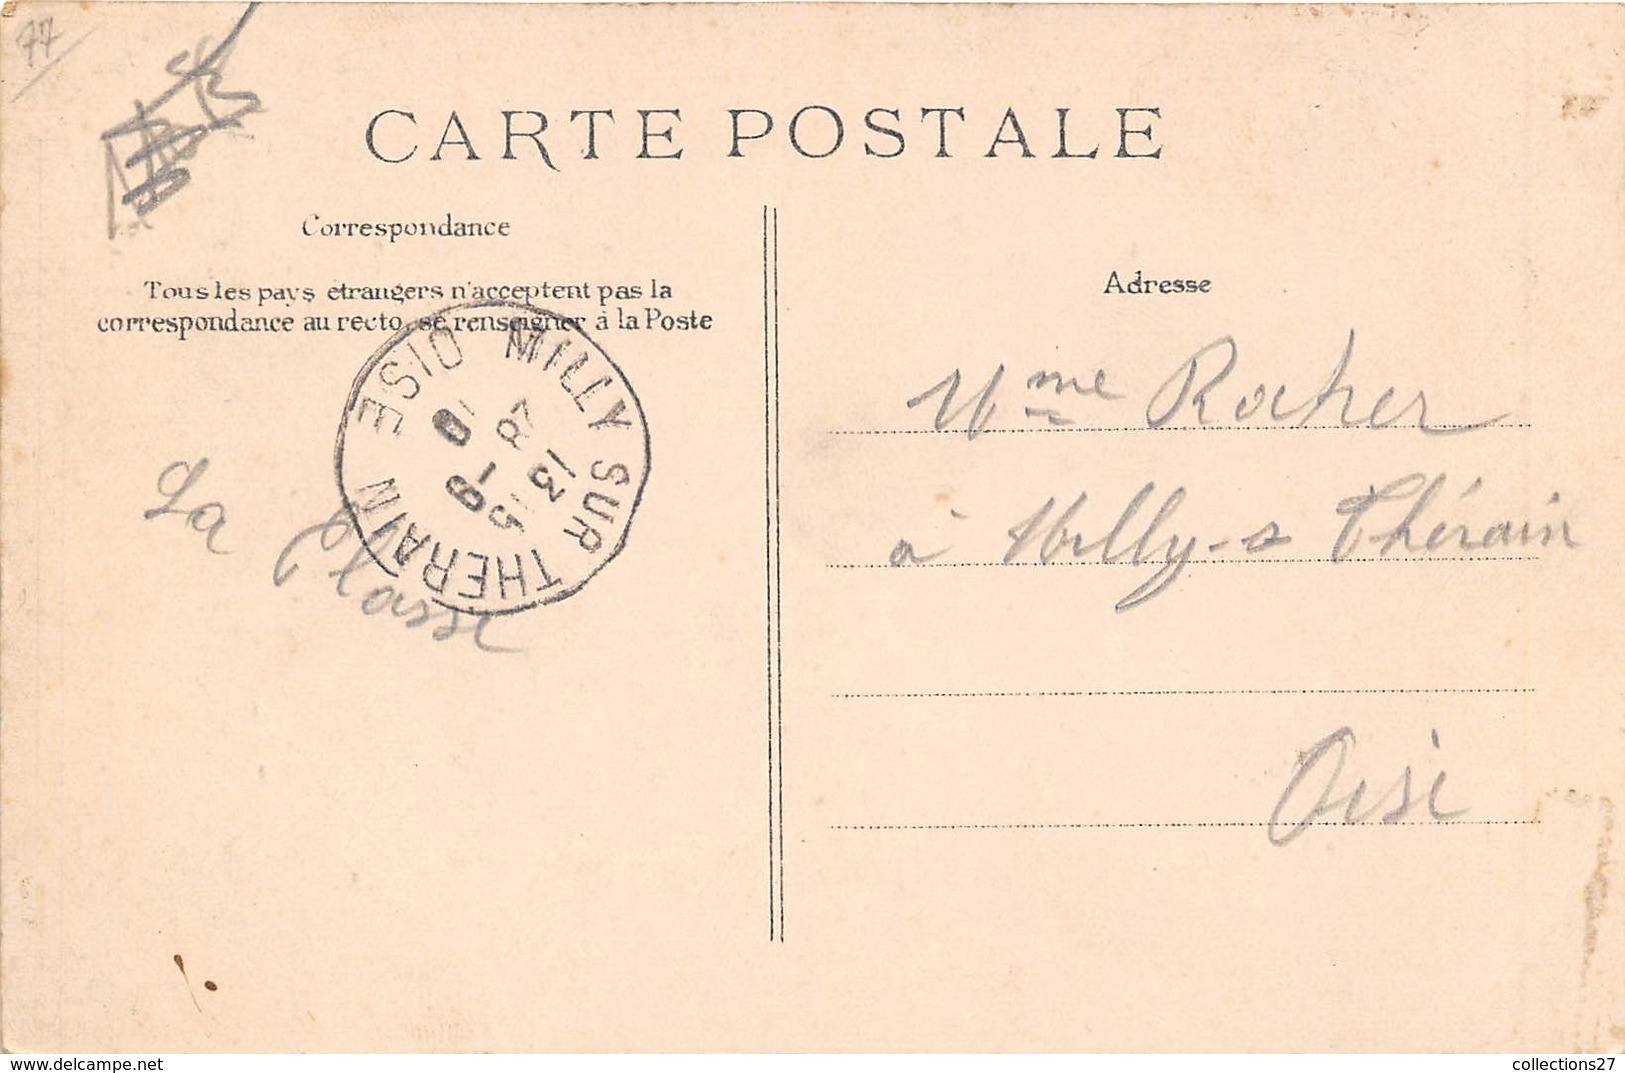 77
CARTE POSTALE
Correspondance
Tous les pays étrangers n'acceptent pas la
correspondance au recto, se renseigner à la Poste
MILLY SUR THERAIN OISE
La
Classe
Adresse
Mme Rocher
à Milly-s Thérain
Oise
https://www.delcampe.net
collections27